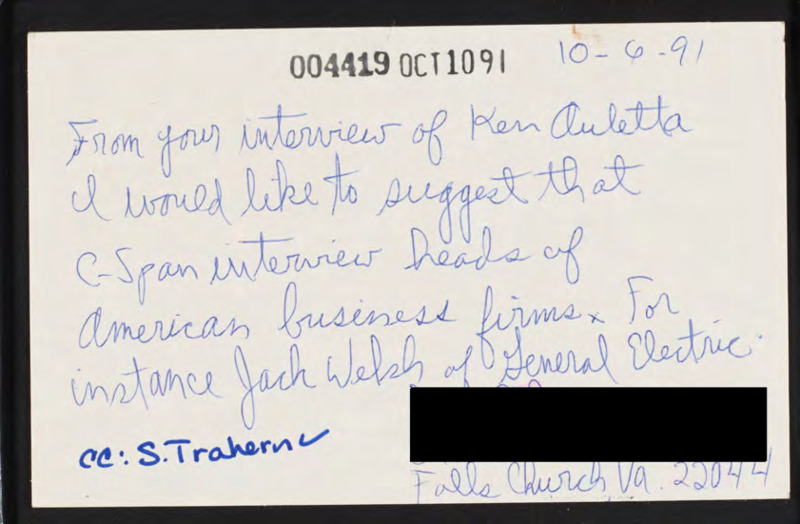 004419 OCT1091 10-6-91
From your interview of Ken Auletta
I would like to suggest that
C-Span interview heads of
American business firms. For
instance Jack Welsh of General Electric.
cc: S. Trahern ✓
Falls Church, Va. 22044